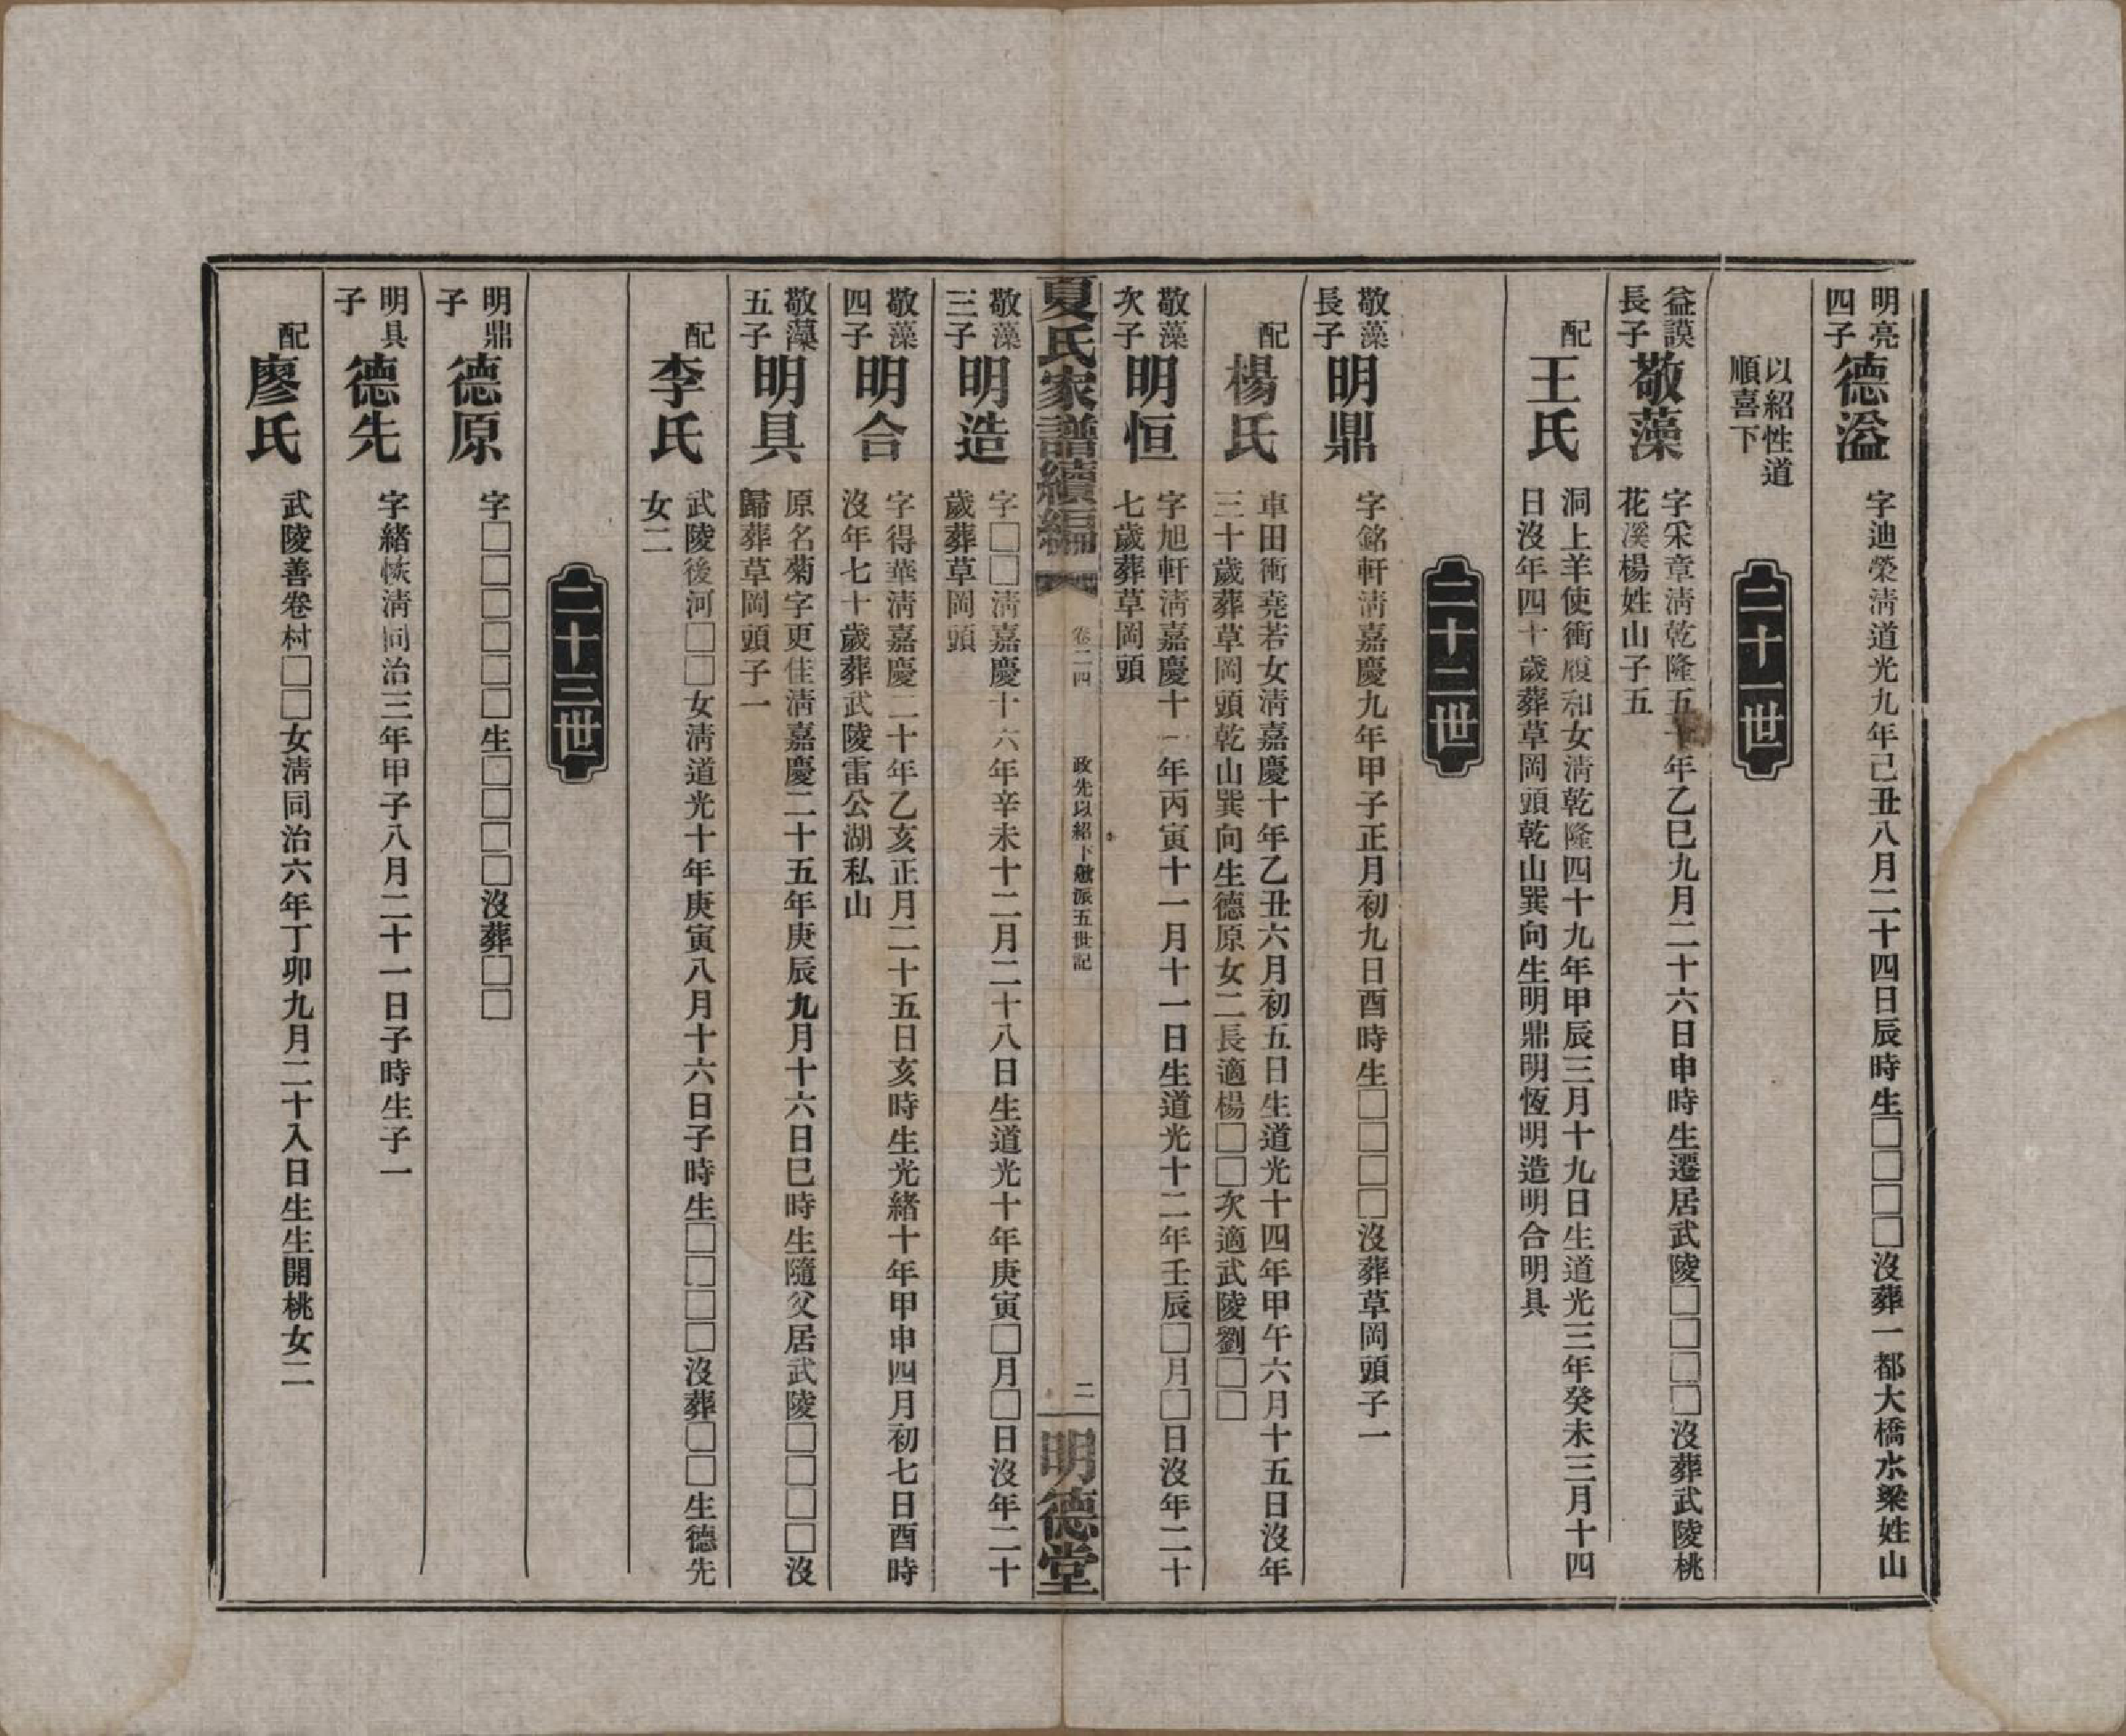 明亮
四子
德溢
字迪榮淸道光九年己丑八月二十四日辰時生□□□□沒葬一都大橋水梁姓山
以紹性道
順喜下
二十一世
益謨
長子
敬藻
字采章淸乾隆五十年乙巳九月二十六日申時生遷居武陵□□□□沒葬武陵桃
花溪楊姓山子五
配
王氏
洞上羊使衝履和女淸乾隆四十九年甲辰三月十九日生道光三年癸未三月十四
日沒年四十歲葬草岡頭乾山巽向生明鼎明恆明造明合明具
二十二世
敬藻
長子
明鼎
字銘軒淸嘉慶九年甲子正月初九日酉時生□□□□沒葬草岡頭子一
配
楊氏
車田衝堯若女淸嘉慶十年乙丑六月初五日生道光十四年甲午六月十五日沒年
三十歲葬草岡頭乾山巽向生德原女二長適楊□□次適武陵劉□□
敬藻
次子
明恒
字旭軒淸嘉慶十一年丙寅十一月十一日生道光十二年壬辰□月□日沒年二十
七歲葬草岡頭
夏氏家譜續編
卷二四
政先以紹下懋派五世記
二
明德堂
敬藻
三子
明造
字□□淸嘉慶十六年辛未十二月二十八日生道光十年庚寅□月□日沒年二十
歲葬草岡頭
敬藻
四子
明合
字得華淸嘉慶二十年乙亥正月二十五日亥時生光緒十年甲申四月初七日酉時
沒年七十歲葬武陵雷公湖私山
敬藻
五子
明具
原名菊字更佳淸嘉慶二十五年庚辰九月十六日巳時生隨父居武陵□□□□沒
歸葬草岡頭子一
配
李氏
武陵後河□□女淸道光十年庚寅八月十六日子時生□□□□沒葬□□生德先
女二
二十三世
明鼎
子
德原
字□□□□□□生□□□□沒葬□□
明具
子
德先
字緒恢淸同治三年甲子八月二十一日子時生子一
配
廖氏
武陵善卷村□□女淸同治六年丁卯九月二十入日生生開桃女二